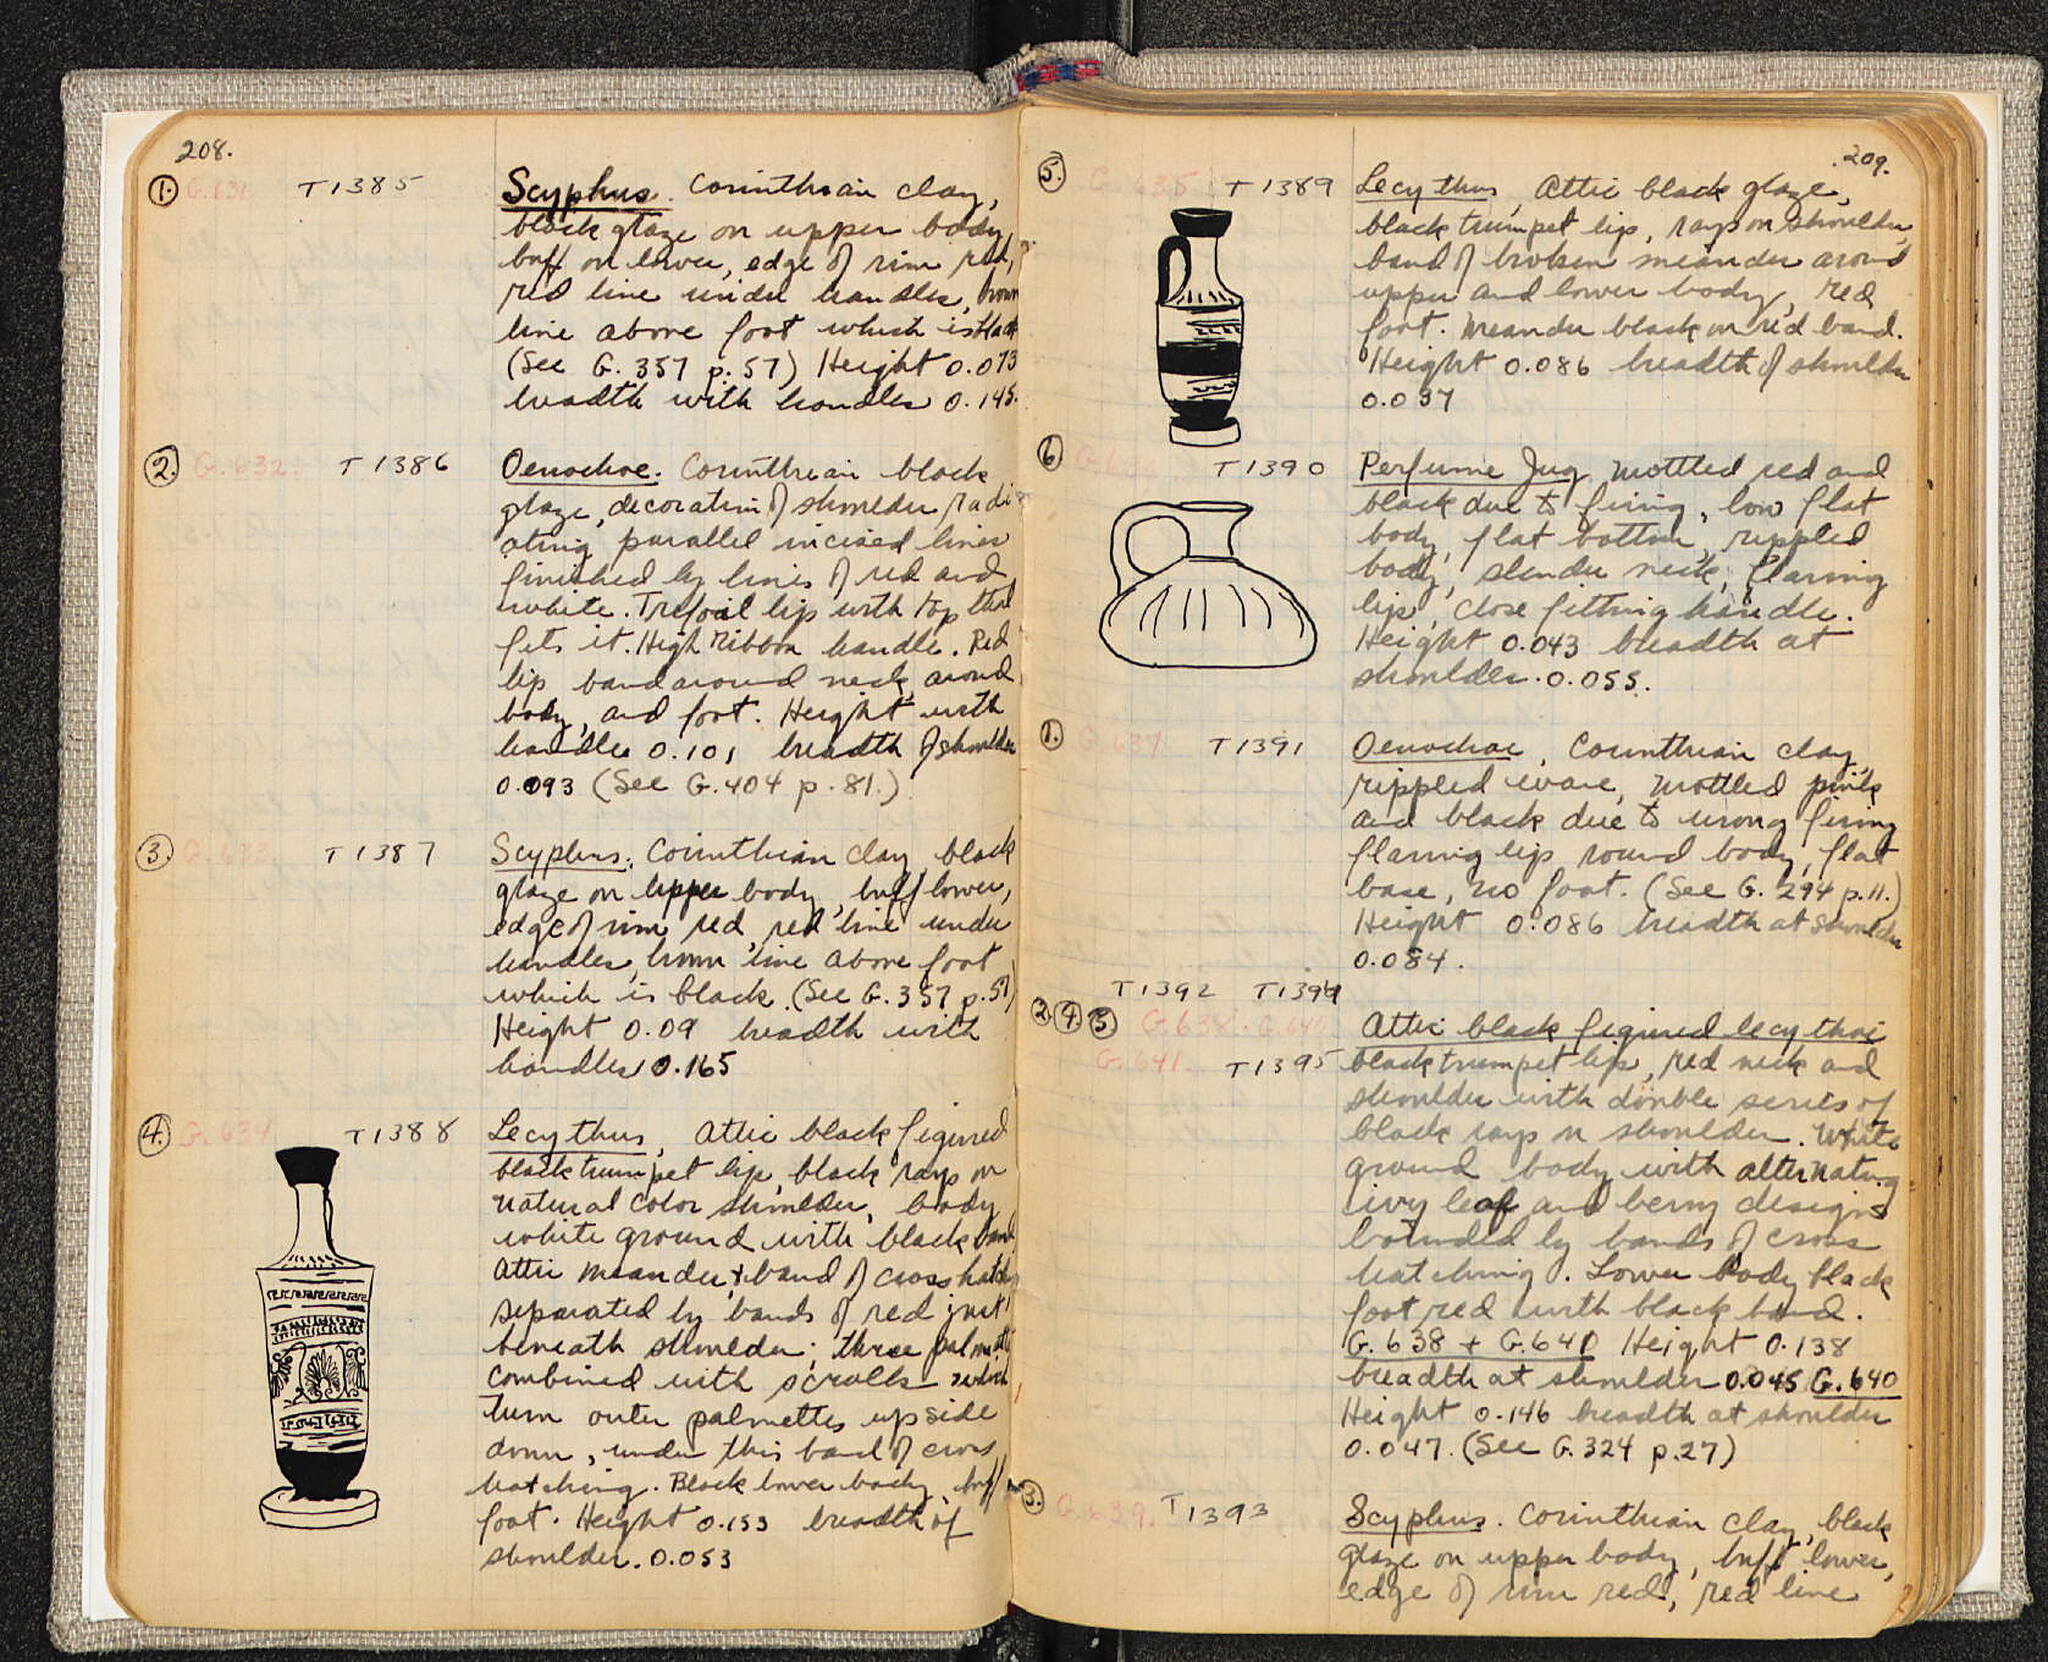 208.
1. G.631 T1385 Scyphus. Corinthian clay,
black glaze on upper body,
buff on lower, edge of rim red,
red line under handles, brown
line above foot which is black
(See G. 357 p. 57) Height 0.073
breadth with handles 0.145.
2. G.632. T1386 Oenochoe. Corinthian black
glaze, decoration of shoulder radi
ating parallel incised lines
finished by lines of red and
white. Trefoil lip with top that
fits it. High Ribbon handle. Red
lip band around neck, around
body, and foot. Height with
handles 0.101 breadth of shoulder
0.093 (See G.404 p. 81.)
3. G.633 T1387 Scyphus. Corinthian clay, black
glaze on upper body, buff lower,
edge of rim red, red line under
handles, brown line above foot
which is black. (See G. 357 p. 57)
Height 0.09 breadth with
handles 0.165
4. G.634 T1388 Lecythus, Attic black figured
black trumpet lip, black rays on
natural color shoulder, body
white ground with black band
Attic meander, + band of cross hatching
separated by bands of red just
beneath shoulder; three palmettes
combined with scrolls which
turn outer palmettes upside
down, under this band of cross
hatching. Black lower body, buff
foot. Height 0.153 breadth of
shoulder. 0.053
209.
5. G.635 T1389 Lecythus, Attic black glaze,
black trumpet lip, rays on shoulder,
band of broken meander around
upper and lower body, red
foot. Meander black on red band.
Height 0.086 breadth of shoulder
0.037
6. G.636 T1390 Perfume Jug, mottled red and
black due to firing, low flat
body, flat bottom, rippled
body, slender neck, flaring
lip, close fitting handle.
Height 0.043 breadth at
shoulder. 0.055.
1. G.637 T1391 Oenochoe, Corinthian clay,
rippled ware, mottled pink
and black due to wrong firing
flaring lip, round body, flat
base, no foot. (See G. 294 p.11.)
Height 0.086 breadth at shoulder
0.084.
T1392 T1394
2. 4. 5. G.638. G.640 Attic black figured lecythoi
G.641. T1395 black trumpet lip, red neck and
shoulder with double series of
black rays on shoulder. White
ground body with alternating
ivy leaf and berry designs
bounded by bands of cross
hatching. Lower body black
foot red with black band.
G.638 + G.640 Height 0.138
breadth at shoulder 0.045 G.640
Height 0.146 breadth at shoulder
0.047. (See G. 324 p.27)
3. G.639. T1393 Scyphus. Corinthian clay, black
glaze on upper body, buff lower,
edge of rim red, red line